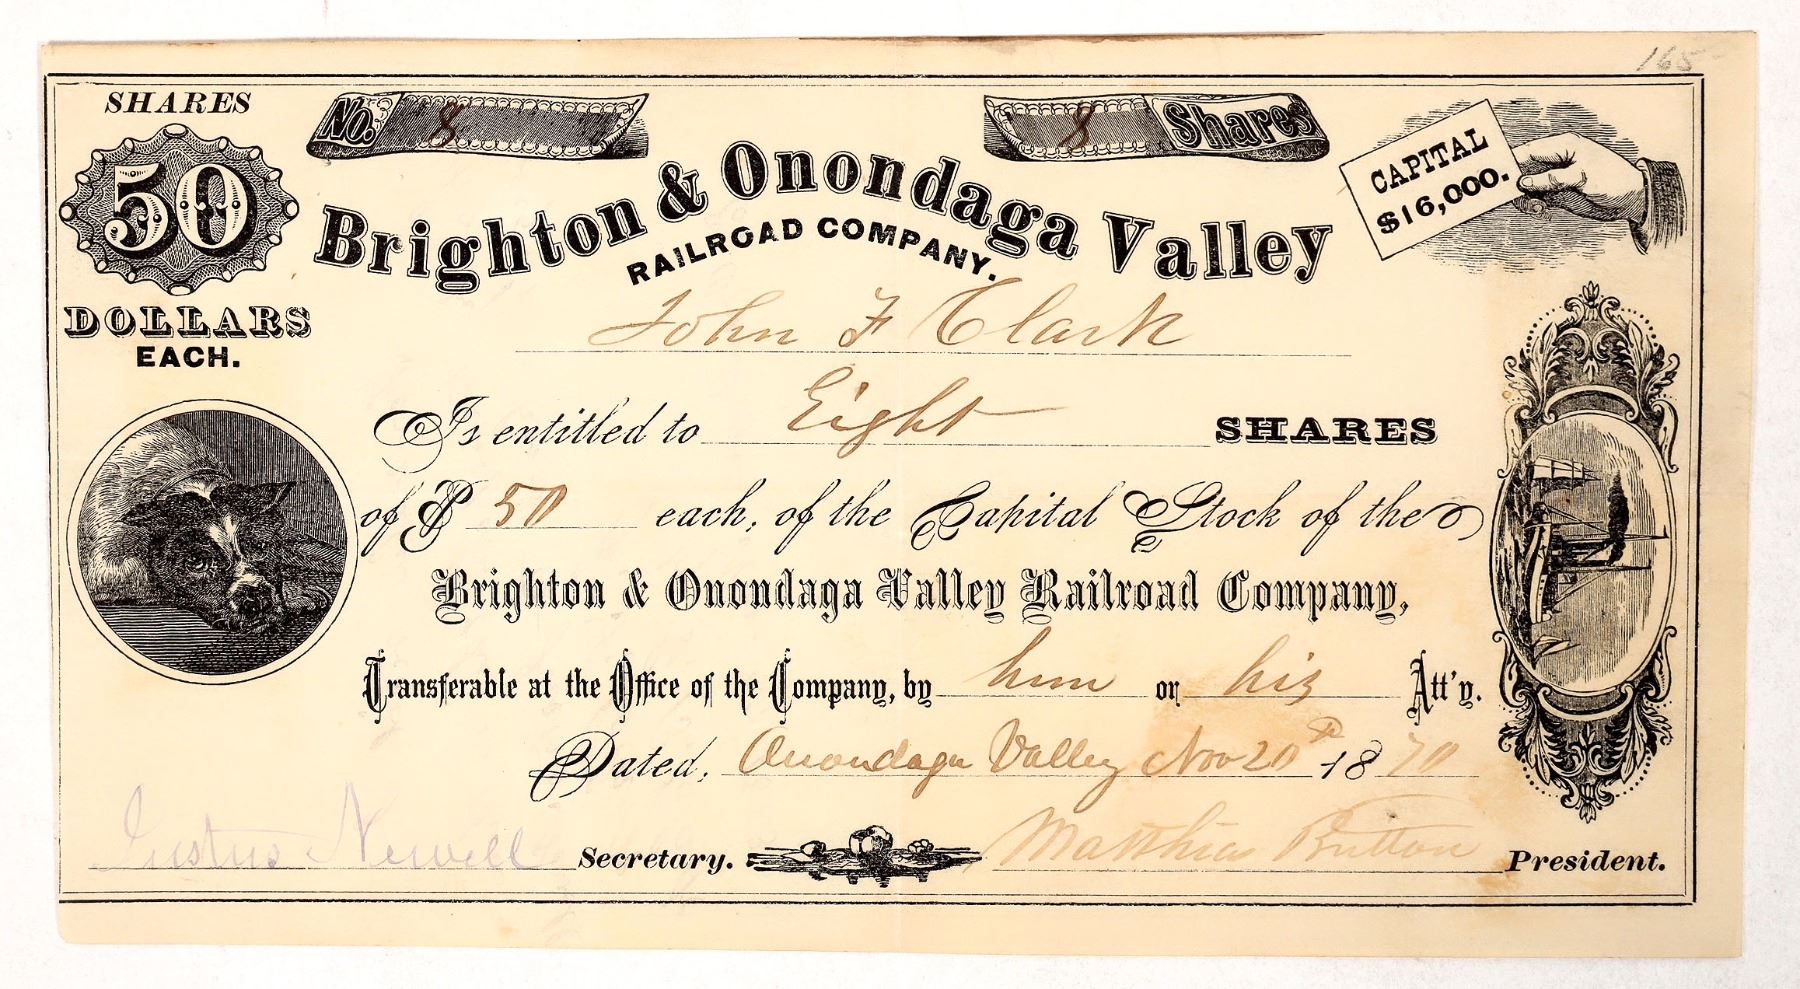 165
SHARES
50
DOLLARS
EACH.
No. 8
8 Shares
CAPITAL
$16,000.
Brighton & Onondaga Valley
RAILROAD COMPANY.
John F Clark
Is entitled to Eight SHARES
of $ 50 each, of the Capital Stock of the
Brighton & Onondaga Valley Railroad Company,
Transferable at the Office of the Company, by him or his Att'y.
Dated, Onondaga Valley Nov 20th 1870
Justus Newell Secretary. Matthias Britton President.